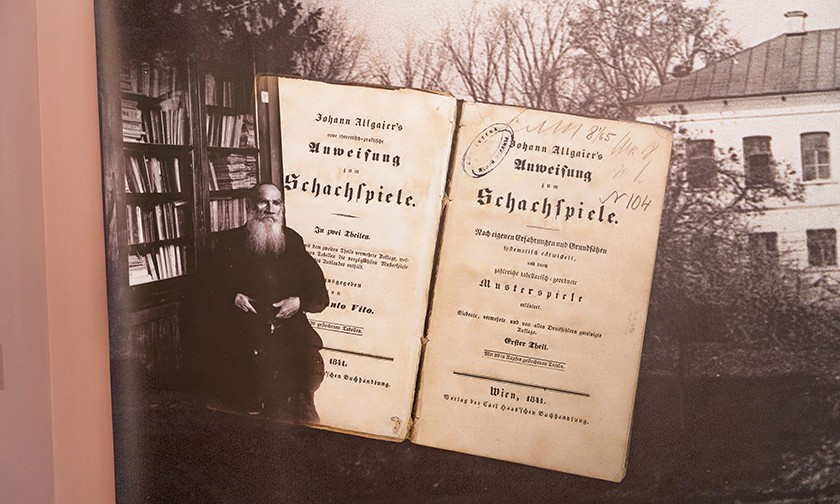 Johann Allgaier's
neue theoretisch-praktische
Anweisung
zum
Schachspiele.
In zwei Theilen.
mit dem zweiten Theile vermehrte Auflage, wel-
Tabellen die vorzüglichsten Musterspiele
Auslandes enthält.
ausgegeben
von
Vito.
gestochenen Tabellen.
1841.
Buchhandlung.
Johann Allgaier's
Anweisung
zum
Schachspiele.
Nach eigenen Erfahrungen und Grundsätzen
systematisch entwickelt,
und durch
zahlreiche tabellarisch-geordnete
Musterspiele
erläutert.
Siebente, vermehrte und von allen Druckfehlern gereinigte
Auflage.
Erster Theil.
Mit Kupfer gestochenen Tafeln.
Wien, 1841.
Verlag der Carl Haas'schen Buchhandlung.
865
N 104